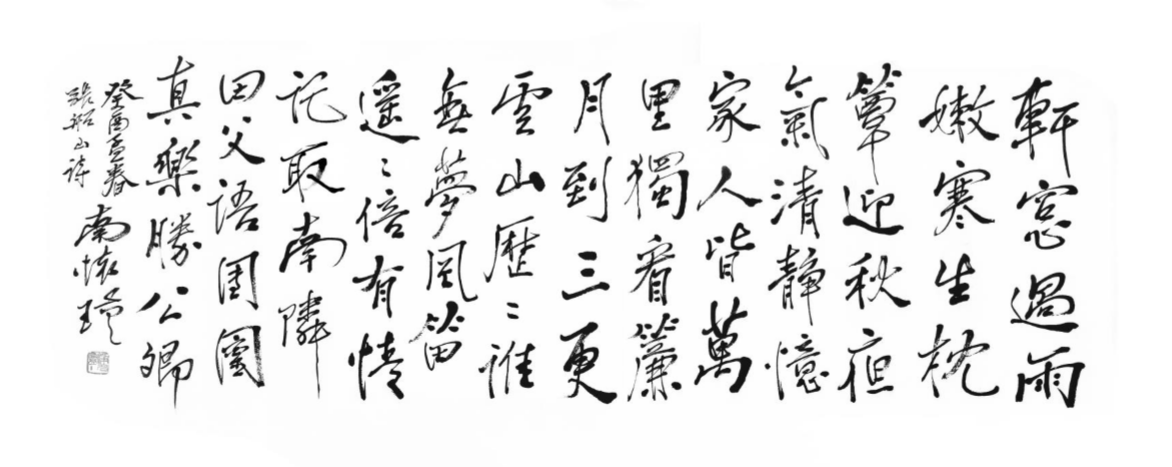 軒窓過雨
嫩寒生枕
簟迎秋夜
氣清静憶
家人皆萬
里獨看簾
月到三更
雲山歷〻誰
無夢風笛
遥〻倍有情
託取南隣
田父語團圞
真樂勝公卿
癸酉孟春
張船山詩
南懷瑾